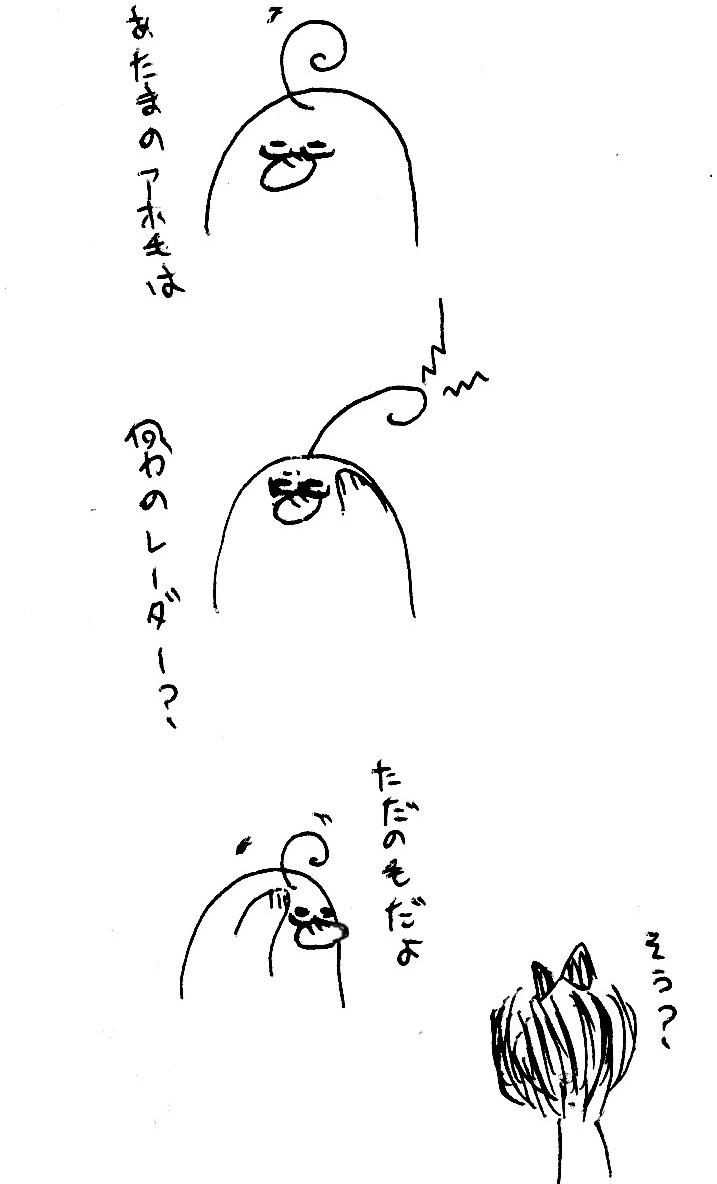 あたまのアホ毛は
何かのレーダー？、
ただのもだよ
そう？、